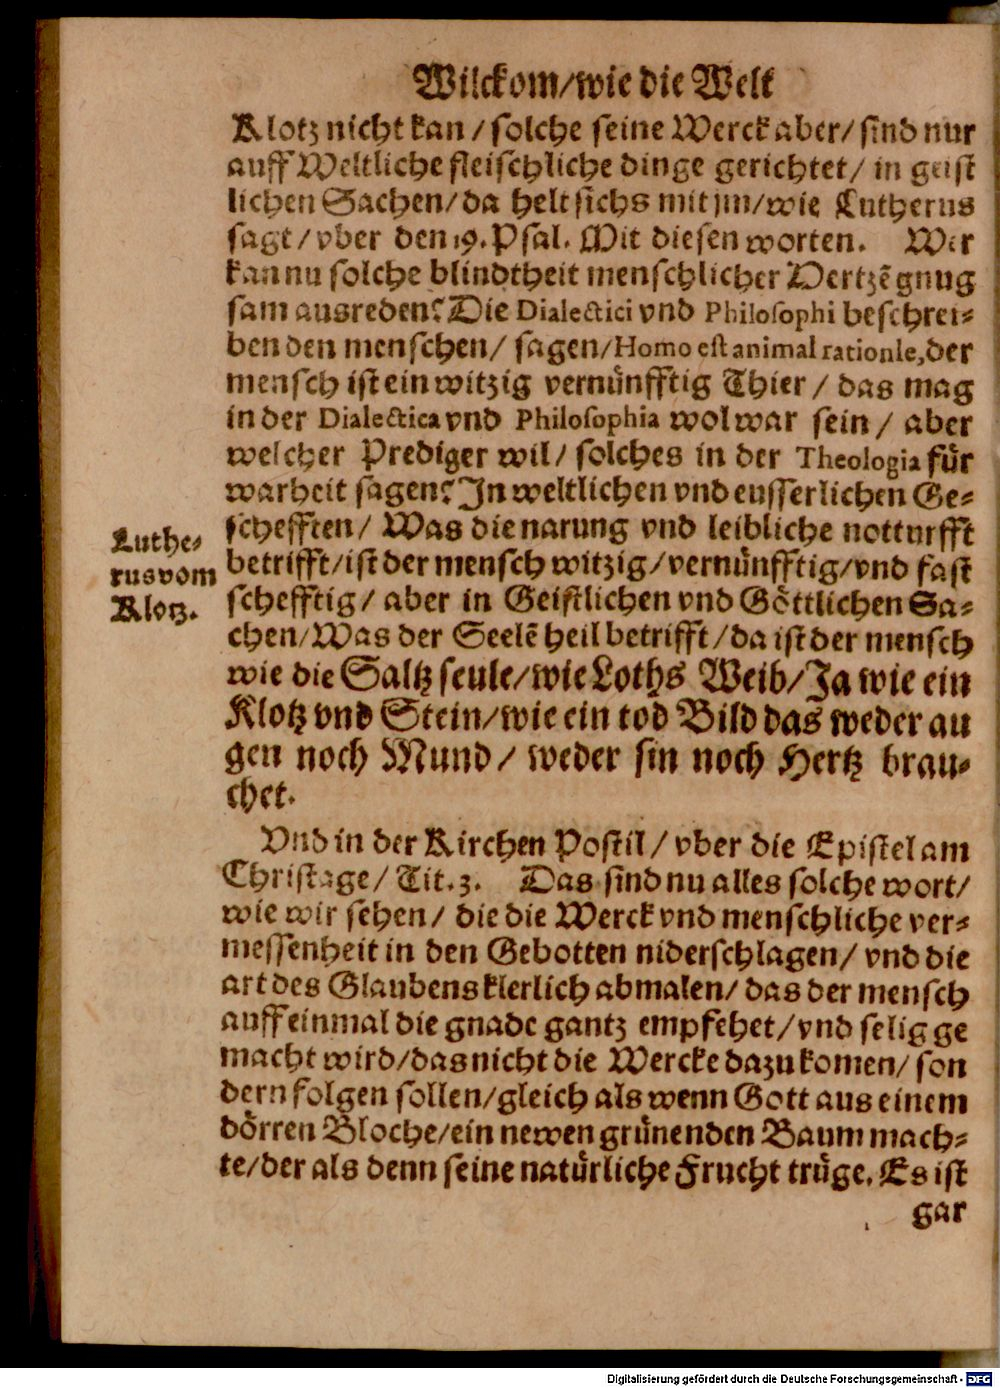 Wilckom/wie die Welt
Klotz nicht kan / solche seine Werck aber/ sind nur
auff Weltliche fleischliche dinge gerichtet/ in geist
lichen Sachen/ da helt sichs mit jm/ wie Lutherus
sagt/ vber den 19. Psal. Mit diesen worten. Wer
kan nu solche blindtheit menschlicher Hertzẽ gnug
sam ausreden? Die Dialectici vnd Philosophi beschrei-
ben den menschen/ sagen/ Homo est animal rationle, der
mensch ist ein witzig vernůnfftig Thier / das mag
in der Dialectica vnd Philosophia wol war sein / aber
welcher Prediger wil/ solches in der Theologia fůr
warheit sagen? In weltlichen vnd eusserlichen Ge-
schefften/ Was die narung vnd leibliche notturfft
betrifft/ist der mensch witzig/vernůnfftig/vnd fast
schefftig/ aber in Geistlichen vnd Gȯttlichen Sa-
chen/ Was der Seelẽ heil betrifft/ da ist der mensch
wie die Saltz seule/wie Loths Weib/ Ja wie ein
Klotz vnd Stein/wie ein tod Bild das weder au
gen noch Mund / weder sin noch Hertz brau-
chet.
Luthe-
rus vom
Klotz.
Vnd in der Kirchen Postil/ vber die Epistel am
Christage/ Tit. 3. Das sind nu alles solche wort/
wie wir sehen/ die die Werck vnd menschliche ver-
messenheit in den Gebotten niderschlagen/ vnd die
art des Glaubens klerlich abmalen/ das der mensch
auff einmal die gnade gantz empfehet/ vnd selig ge
macht wird/das nicht die Wercke dazu komen/ son
dern folgen sollen/gleich als wenn Gott aus einem
dȯrren Bloche/ein newen grůnenden Baum mach-
te/der als denn seine natůrliche Frucht trůge. Es ist
gar
Digitalisierung gefördert durch die Deutsche Forschungsgemeinschaft - DFG